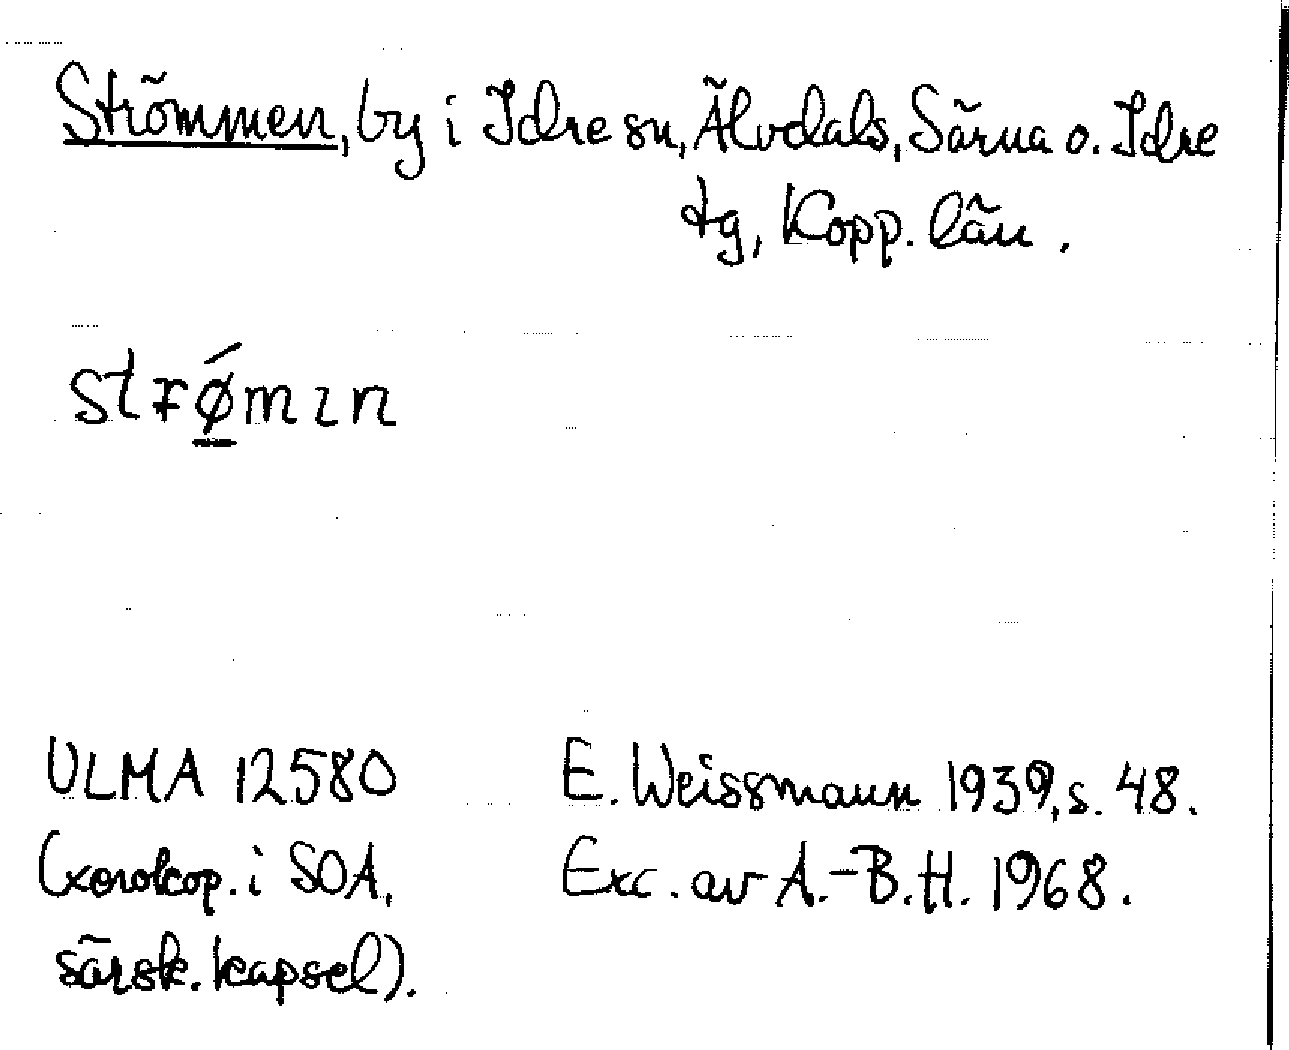 Strömmen, by i Idre sn, Älvdals, Särna o. Idre
tg, Kopp. län.
strǿmın
ULMA 12580
(xerokop. i SOA,
särsk. kapsel).
E. Weissmann 1939, s. 48.
Exc. av A.-B.H. 1968.